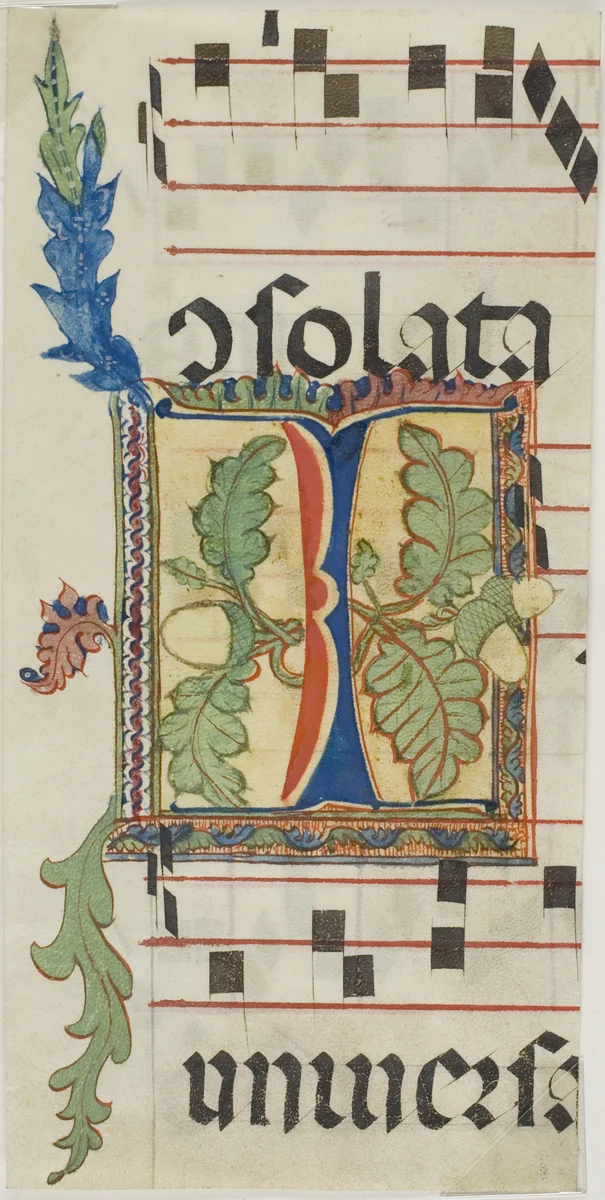 ɔſolata
I
uniuerſa